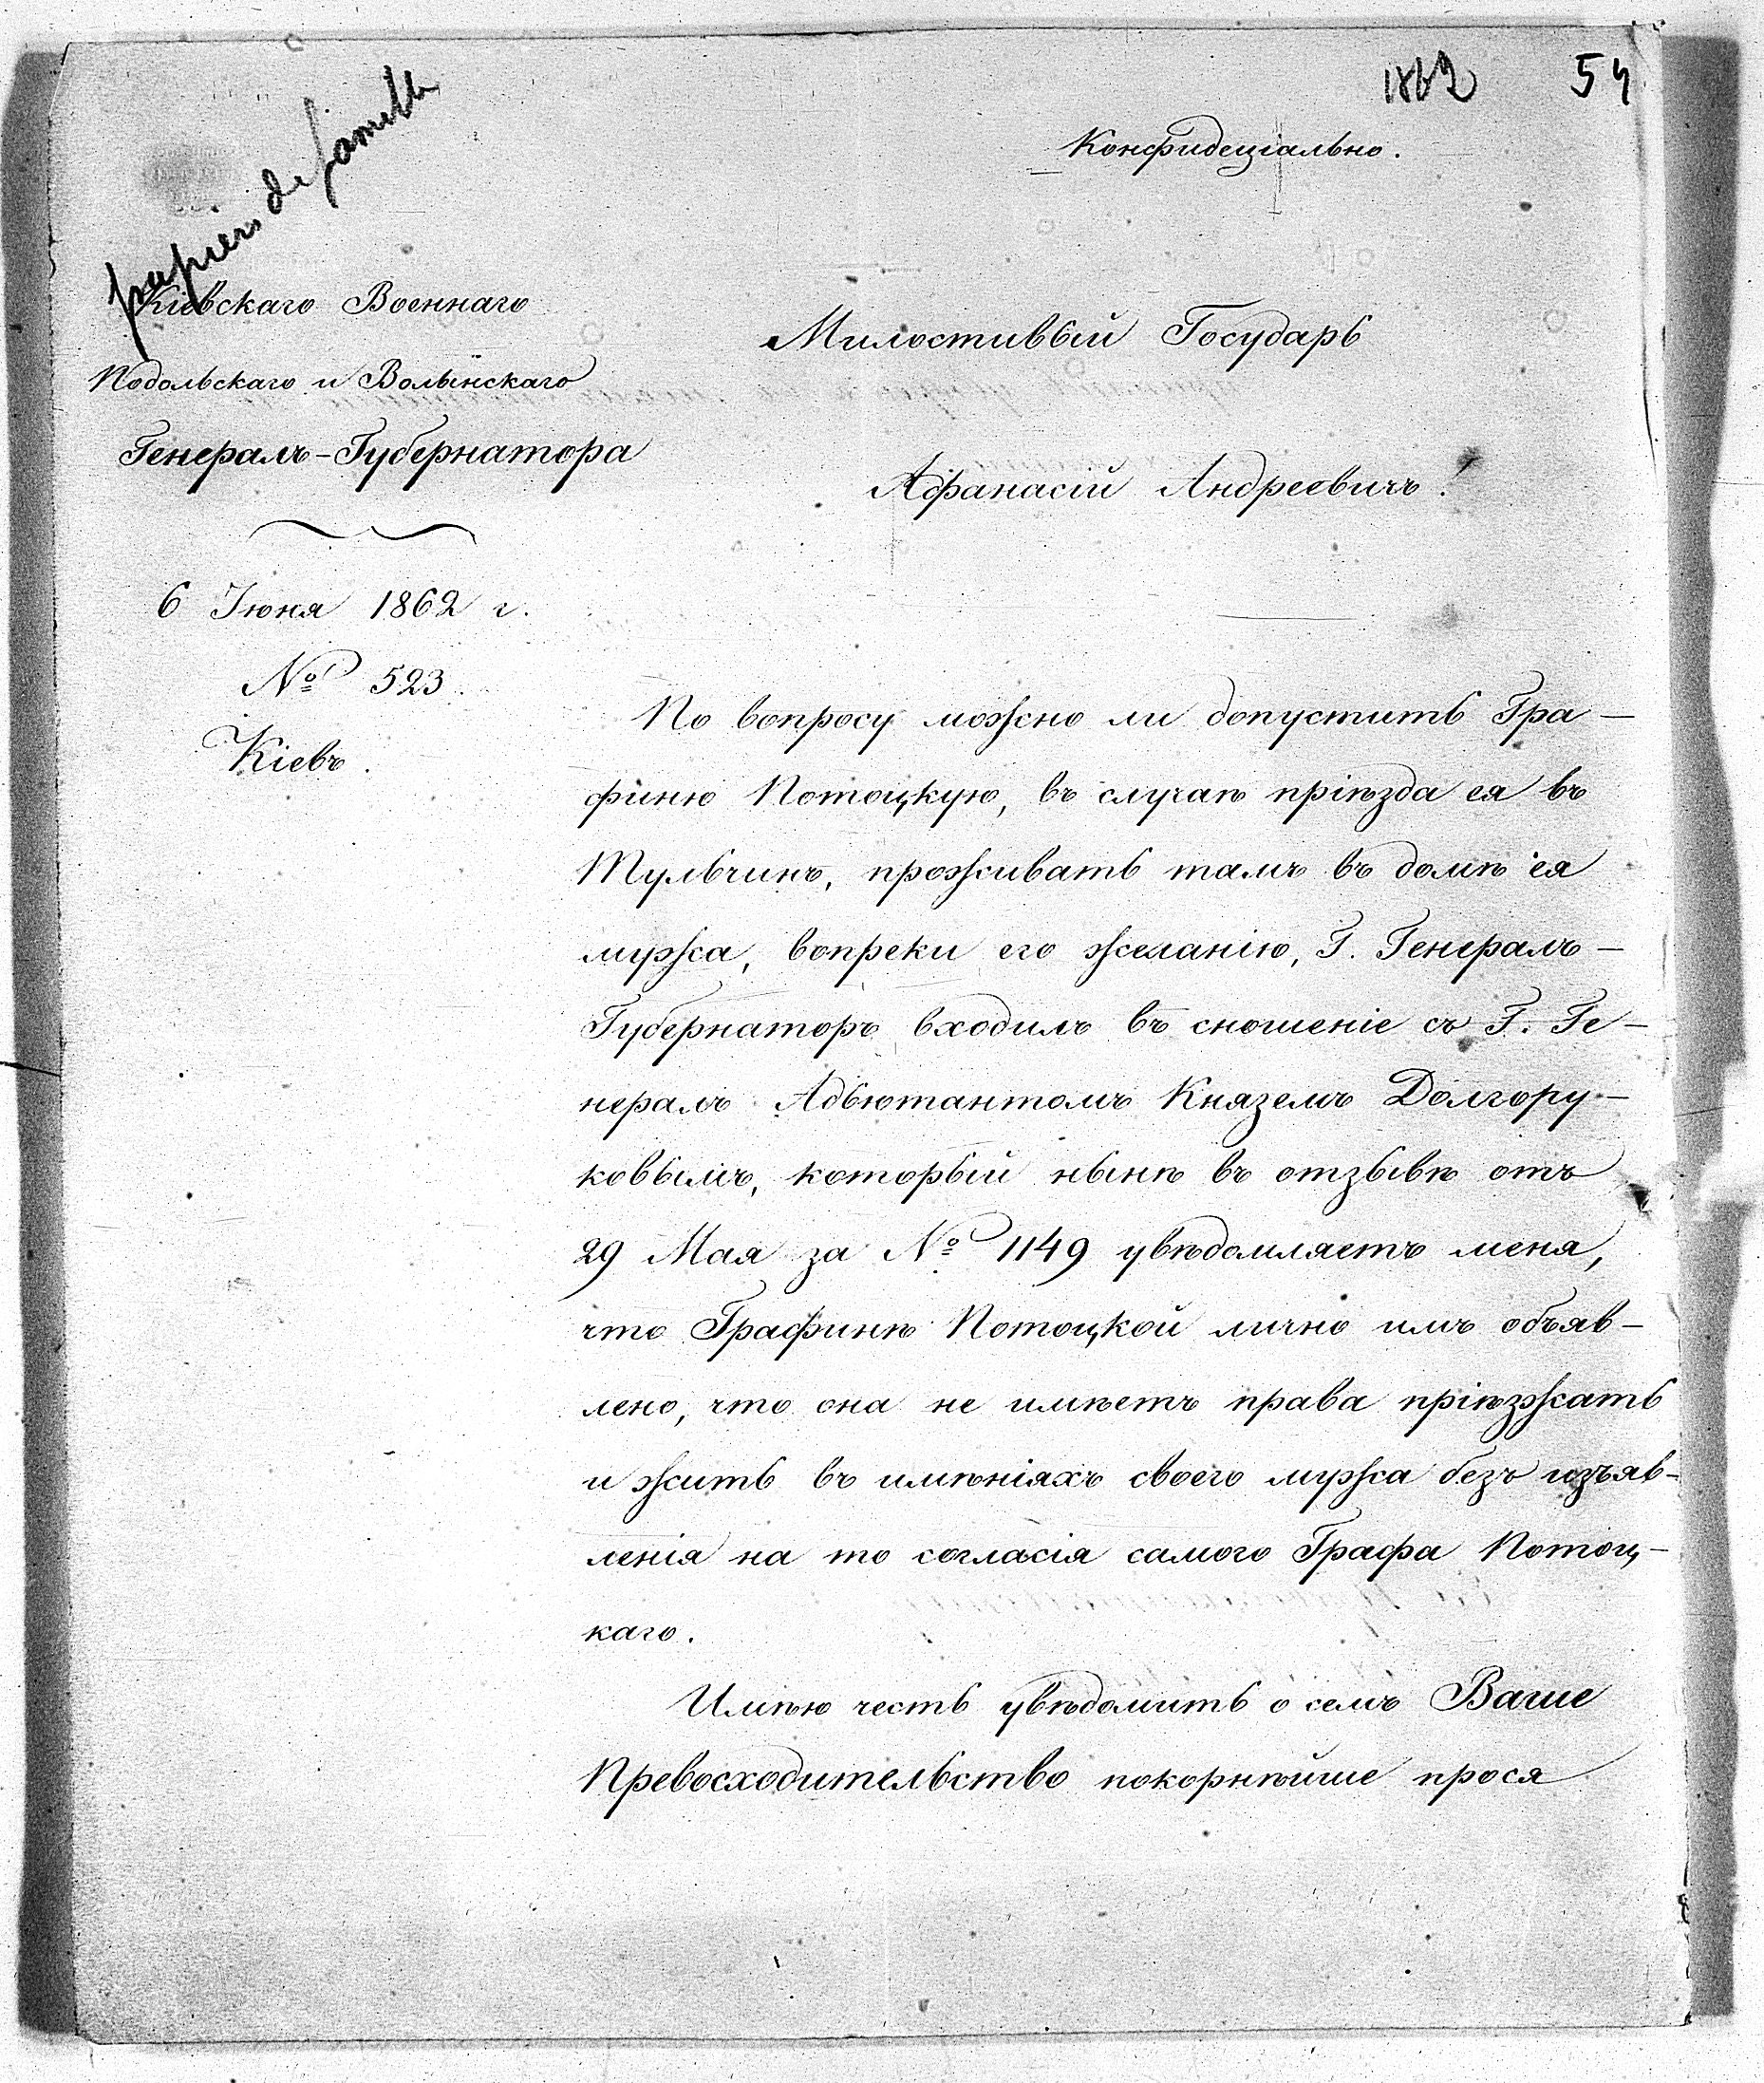 1862 54
papiers de famille
Конфидеціально.
Кіевскаго Военнаго
Подольскаго и Волынскаго
Генералъ-Губернатора
6 Іюня 1862 г.
№ 523.
Кіевъ.
Милостивый Государь
Афанасій Андреевичъ!
По вопросу можно ли допустить Гра-
финю Потоцкую, въ случаѣ пріѣзда ея въ
Тульчинъ, проживать тамъ въ домѣ ея
мужа, вопреки его желанію, Г. Генералъ-
Губернаторъ входилъ въ сношеніе съ Г. Ге-
нералъ Адьютантомъ Княземъ Долгору-
ковымъ, который нынѣ въ отзывѣ отъ
29 Мая за № 1149 увѣдомляетъ меня,
что Графинѣ Потоцкой лично имъ объяв-
лено, что она не имѣетъ права пріѣзжать
и жить въ имѣніяхъ своего мужа безъ изъяв-
ленія на то согласія самого Графа Потоц-
каго.
Имѣю честь увѣдомить о семъ Ваше
Превосходительство покорнѣйше прося